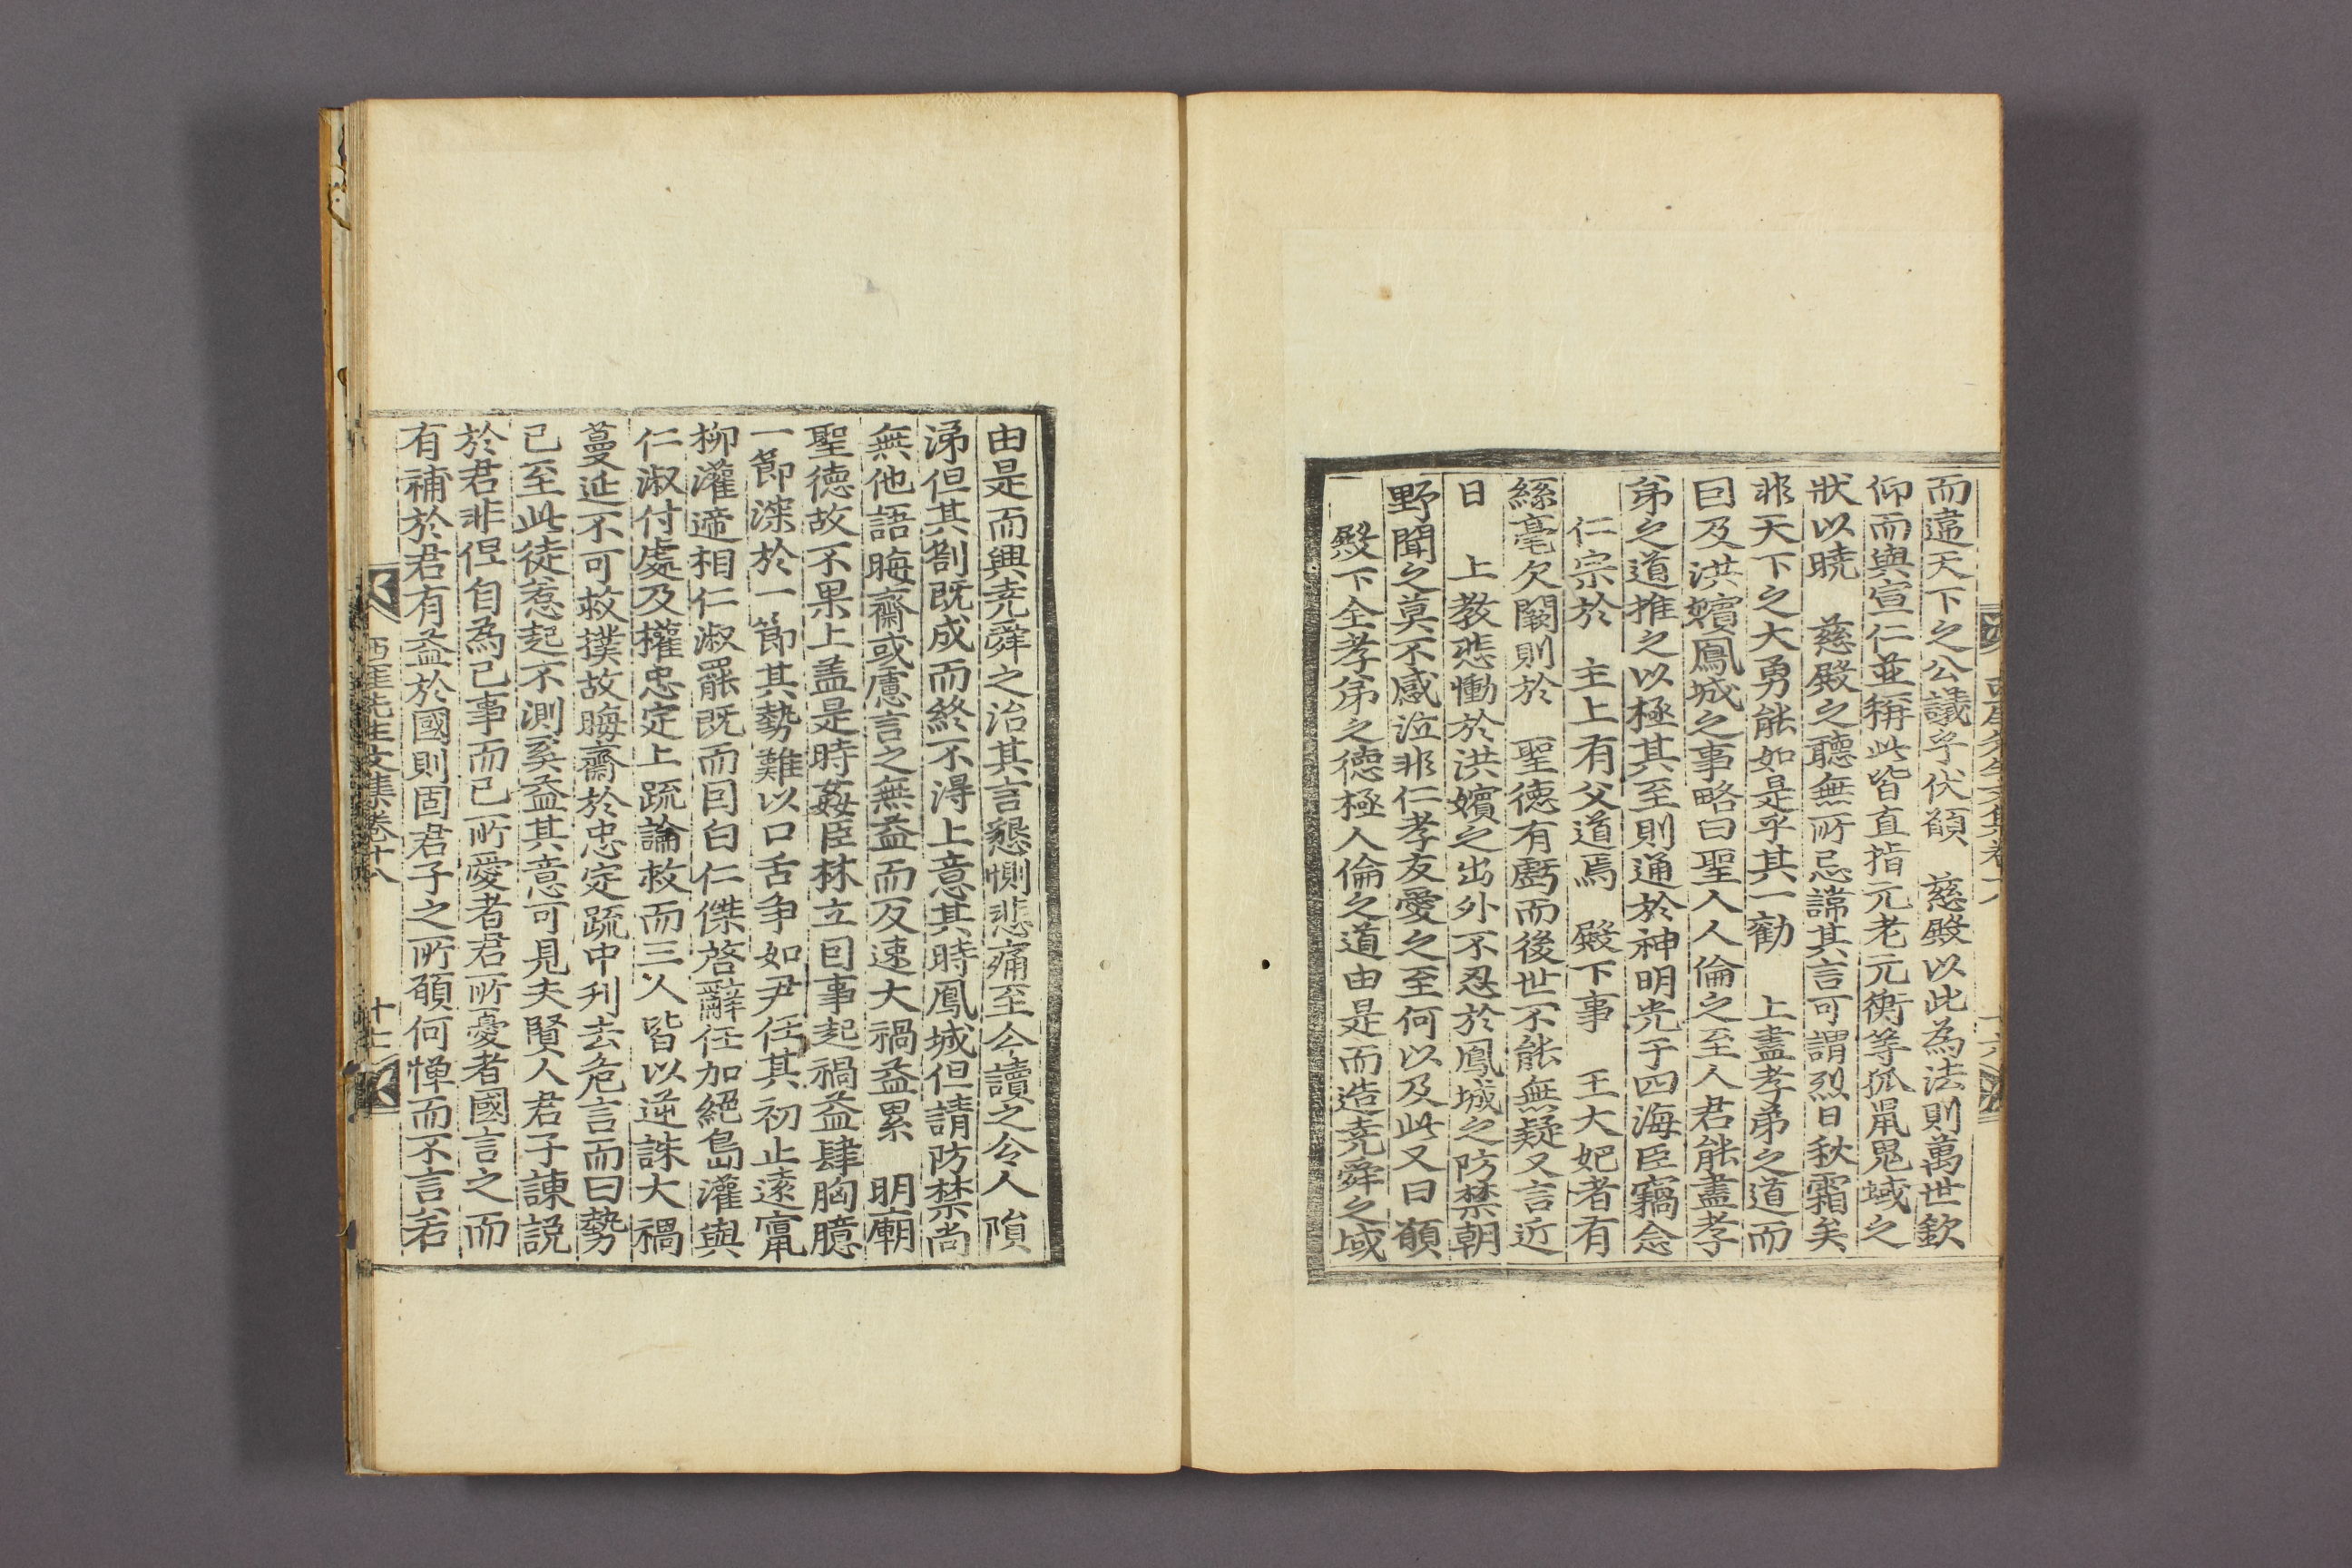 西厓先生文集卷十八
十六
而違天下之公議乎伏願　慈殿以此為法則萬世欽
仰而與宣仁並稱此皆直指元老元衡等狐鼠鬼蜮之
狀以曉　慈殿之聽無所忌諱其言可謂烈日秋霜矣
非天下之大勇能如是乎其一勸　上盡孝弟之道而
因及洪嬪鳳城之事略曰聖人人倫之至人君能盡孝
弟之道推之以極其至則通於神明光于四海臣竊念
仁宗於　主上有父道焉　殿下事　王大妃者有
絲毫欠闕則於　聖德有虧而後世不能無疑又言近
日　上教悲慟於洪嬪之出外不忍於鳳城之防禁朝
野聞之莫不感泣非仁孝友愛之至何以及此又曰願
殿下全孝弟之德極人倫之道由是而造堯舜之域
由是而興堯舜之治其言懇惻悲痛至今讀之令人隕
涕但其劄既成而終不得上意其時鳳城但請防禁尚
無他語晦齋或慮言之無益而反速大禍益累　明廟
聖德故不果上盖是時姦臣林立因事起禍益肆胸臆
一節深於一節其勢難以口舌争如尹任其初止遠竄
柳灌遞相仁淑罷既而因白仁傑啓辭任加絕島灌與
仁淑付處及權忠定上疏論救而三人皆以逆誅大禍
蔓延不可救撲故晦齋於忠定疏中刋去危言而曰勢
已至此徒惹起不測奚益其意可見夫賢人君子諫說
於君非但自為己事而已所愛者君所憂者國言之而
有補於君有益於國則固君子之所願何憚而不言若
西厓先生文集卷十八
十七